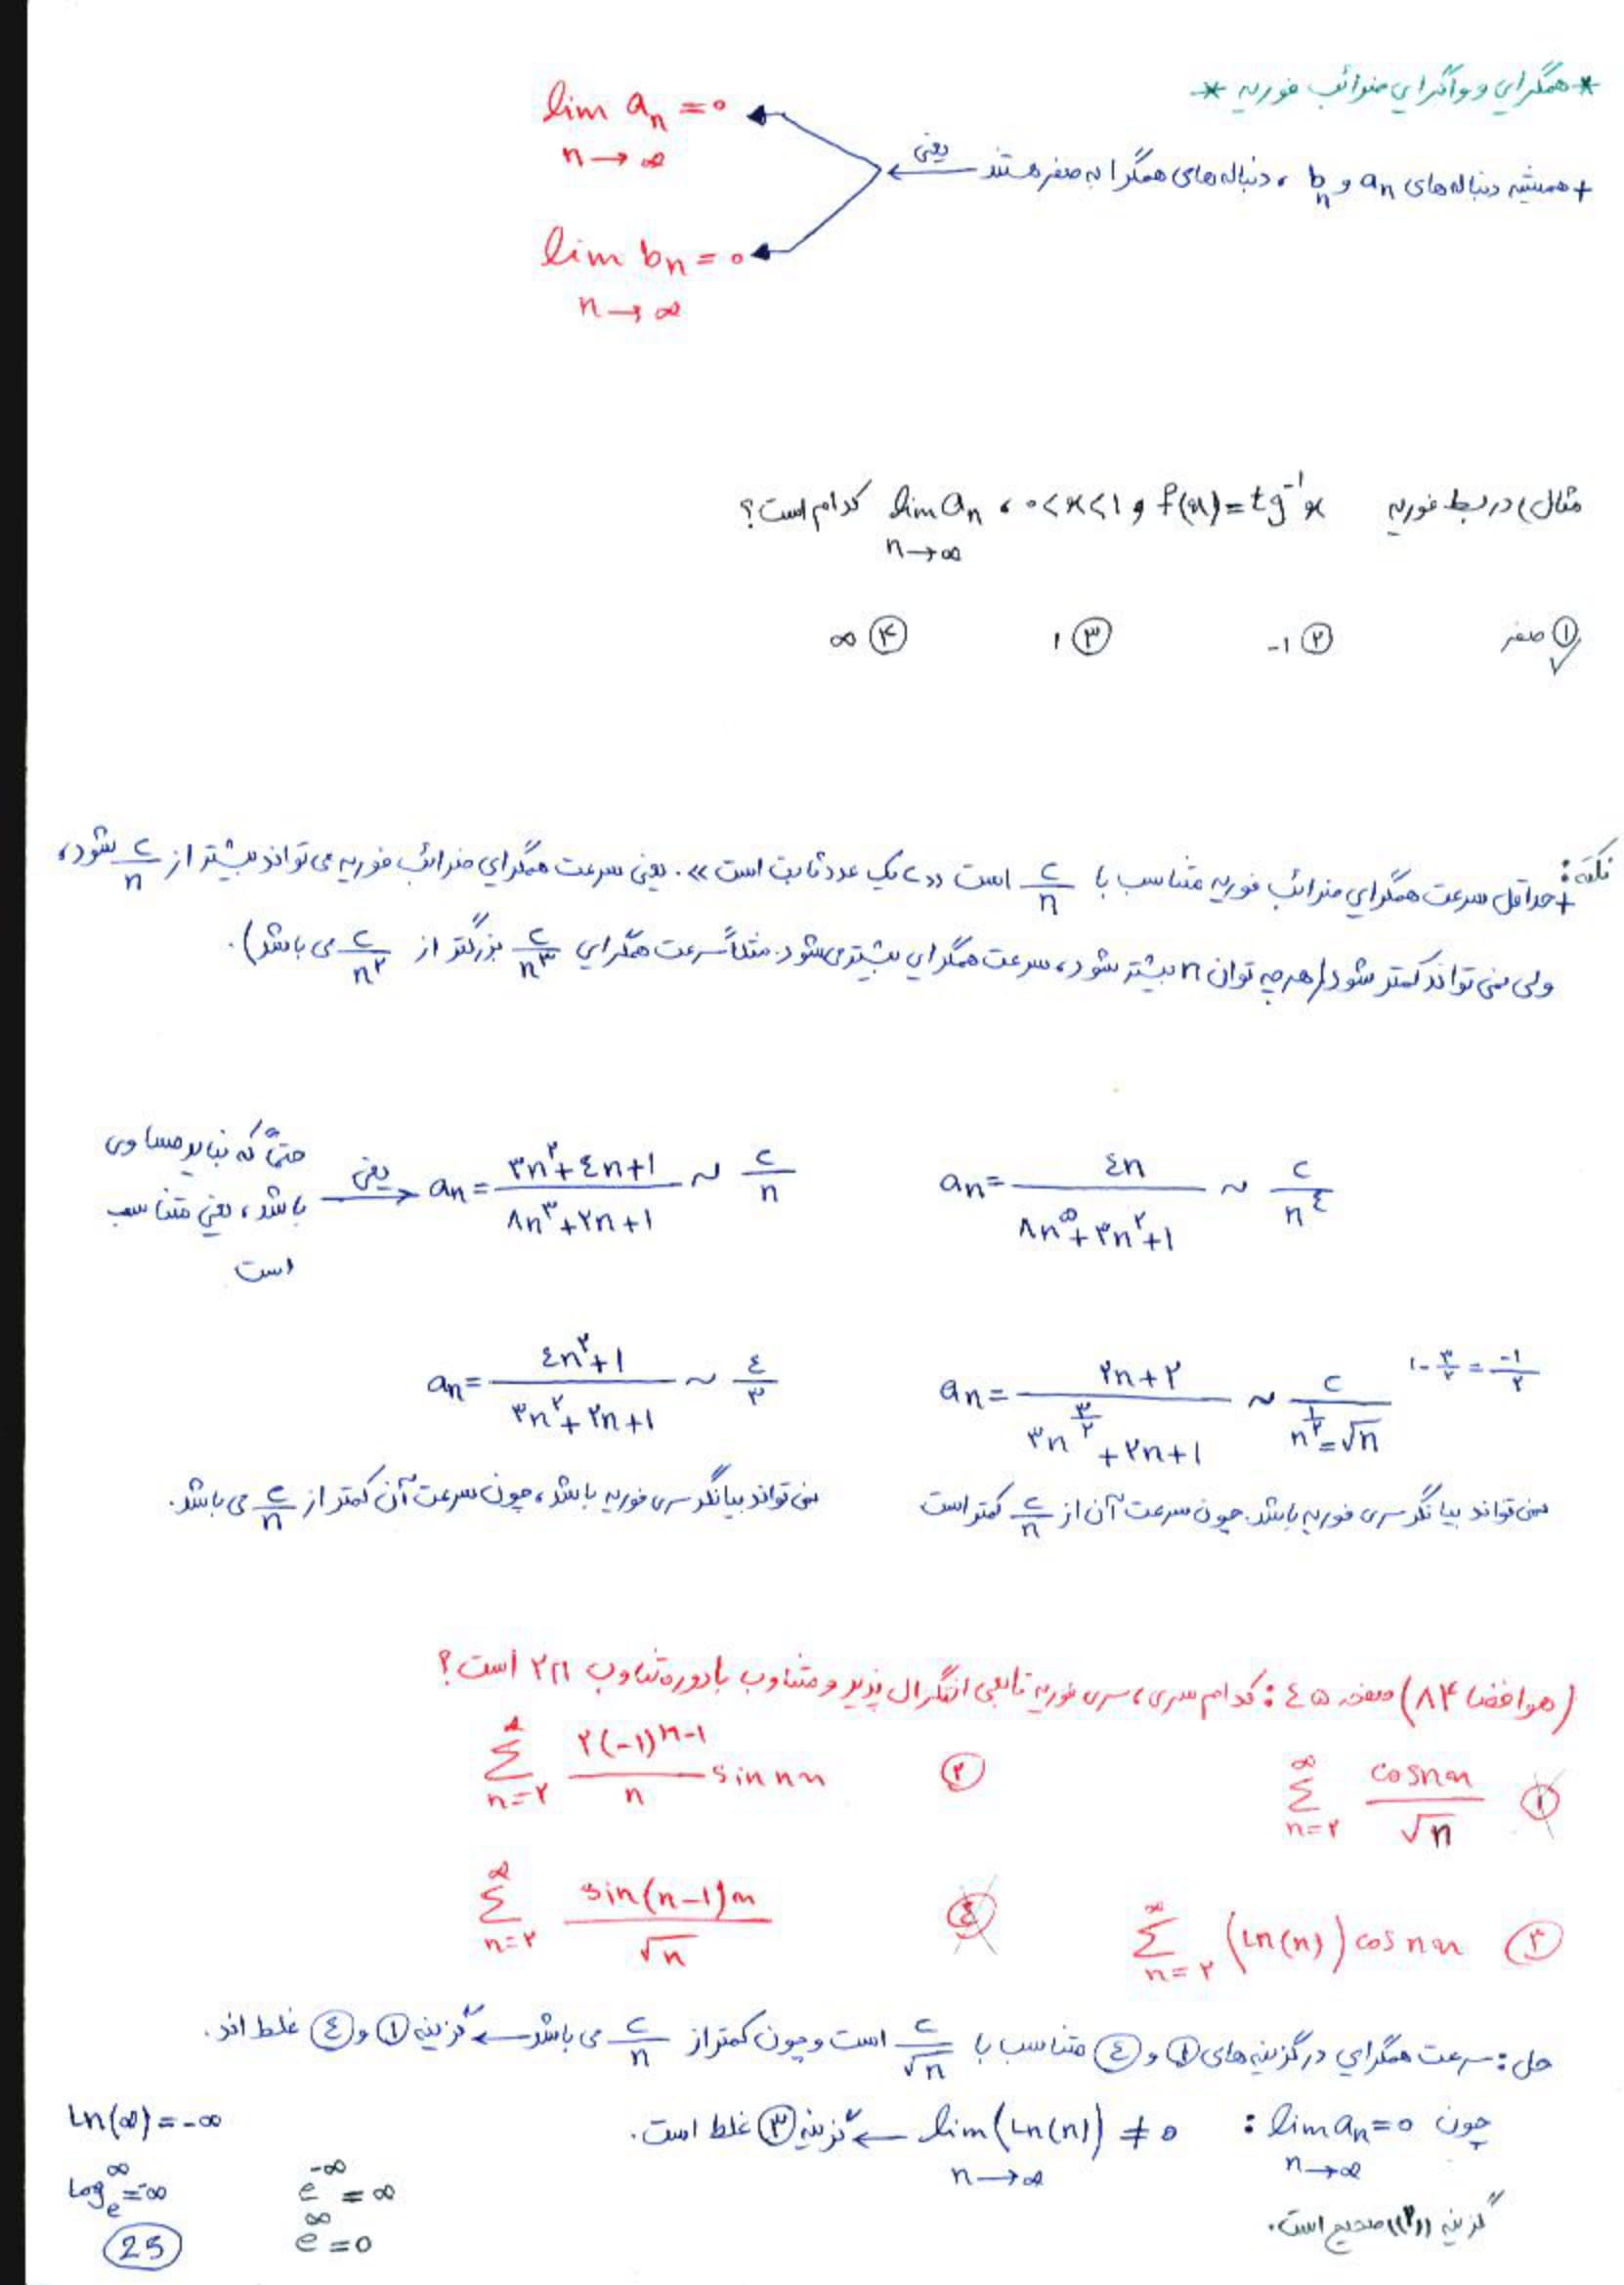 * همگرایی و واگرایی ضرائب فوریه *
+ همیشه دنباله های an و bn ، دنباله های همگرا به صفر هستند یعنی
lim an = ۰
n → ∞
lim bn = ۰
n → ∞
مثال) در بسط فوریه f(x) = tg⁻¹x و ۰<x<۱ ، lim an کدام است؟
n→∞
① صفر ② -۱ ③ ۱ ④ ∞
نکته:
+ حداقل سرعت همگرایی ضرائب فوریه متناسب با c/n است «c یک عدد ثابت است». یعنی سرعت همگرایی ضرائب فوریه می تواند بیشتر از c/n شود،
ولی نمی تواند کمتر شود (هر چه توان n بیشتر شود، سرعت همگرایی بیشتر می شود. مثلاً سرعت همگرایی c/n^۳ بزرگتر از c/n^۲ می باشد).
an = ٤n / (۸n^۵+۳n^۲+۱) ~ c/n^٤
an = (۳n^۲+٤n+۱) / (۸n^۳+۲n+۱) ~ c/n یعنی حتماً که نباید مساوی
باشد، یعنی متناسب
است
an = (۲n+۲) / (۳n^(۳/۲)+۲n+۱) ~ c / n^(۱/۲)=√n ۱-۳/۲ = -۱/۲
an = (٤n^۲+۱) / (۳n^۲+۲n+۱) ~ ٤/۳
نمی تواند بیانگر سری فوریه باشد. چون سرعت آن از c/n کمتر است
نمی تواند بیانگر سری فوریه باشد، چون سرعت آن کمتر از c/n می باشد.
(هوافضا ۸۴) صفحه ٤۵ : کدام سری، سری فوریه تابعی انتگرال پذیر و متناوب با دوره تناوب ۲π است؟
① ∑ n=۲ ∞ cosnx / √n
② ∑ n=۲ ∞ ۲(-۱)^(n-۱) / n sin nx
③ ∑ n=۲ ∞ (Ln(n)) cos nx
④ ∑ n=۲ ∞ sin(n-۱)x / √n
حل: سرعت همگرایی در گزینه های ① و ④ متناسب با c/√n است و چون کمتر از c/n می باشد ← گزینه ① و ④ غلط اند.
چون lim an = ۰ : lim (Ln(n)) ≠ ۰ ← گزینه ③ غلط است.
n→∞ n→∞
گزینه «۲» صحیح است.
Ln(∞) = -∞
Log_e^∞ = -∞
e^-∞ = ∞
e^∞ = 0
25